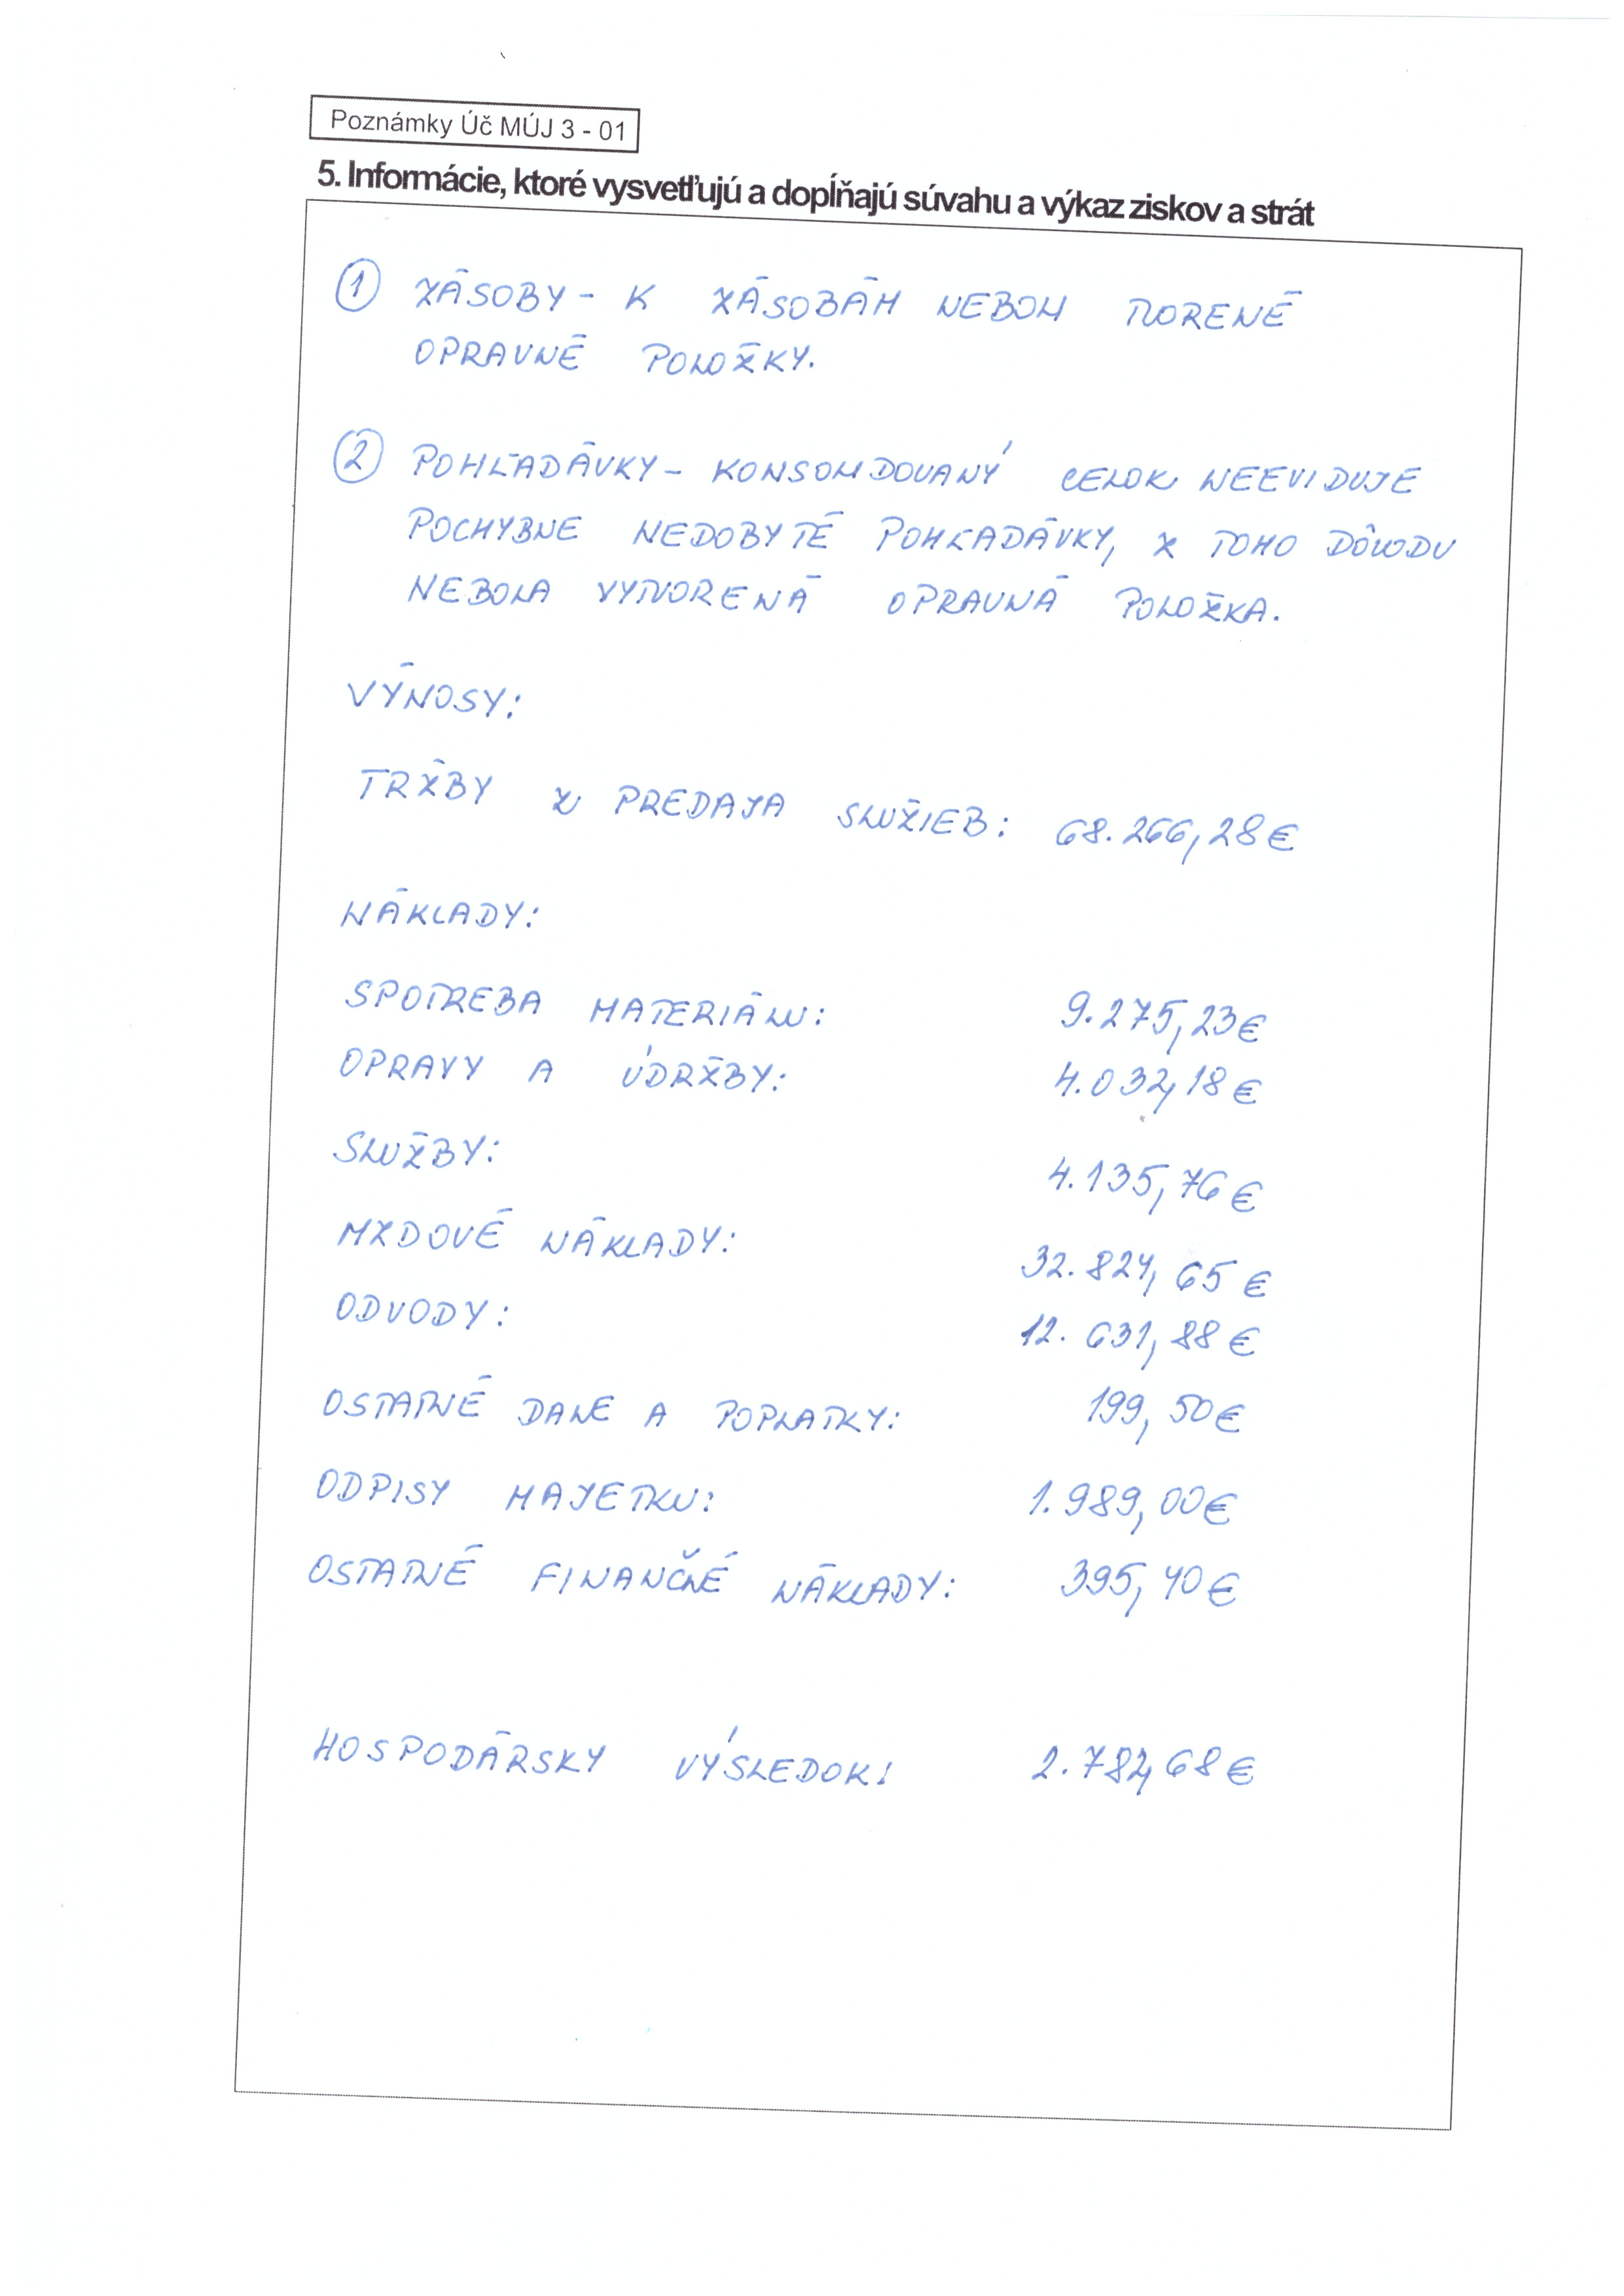 Poznámky Úč MÚJ 3 - 01
5. Informácie, ktoré vysvetľujú a dopĺňajú súvahu a výkaz ziskov a strát
1 ZÁSOBY - K ZÁSOBÁM NEBOLI TVORENÉ
OPRAVNÉ POLOŽKY.
2 POHĽADÁVKY - KONSOLIDOVANÝ CELOK NEEVIDUJE
POCHYBNE NEDOBYTÉ POHĽADÁVKY, Z TOHO DÔVODU
NEBOLA VYTVORENÁ OPRAVNÁ POLOŽKA.
VÝNOSY:
TRŽBY Z PREDAJA SLUŽIEB: 68.266,28 €
NÁKLADY:
SPOTREBA MATERIÁLU: 9.275,23 €
OPRAVY A ÚDRŽBY: 4.032,18 €
SLUŽBY: 4.135,76 €
MZDOVÉ NÁKLADY: 32.824,65 €
ODVODY: 12.631,88 €
OSTATNÉ DANE A POPLATKY: 199,50 €
ODPISY MAJETKU: 1.989,00 €
OSTATNÉ FINANČNÉ NÁKLADY: 395,40 €
HOSPODÁRSKY VÝSLEDOK: 2.782,68 €